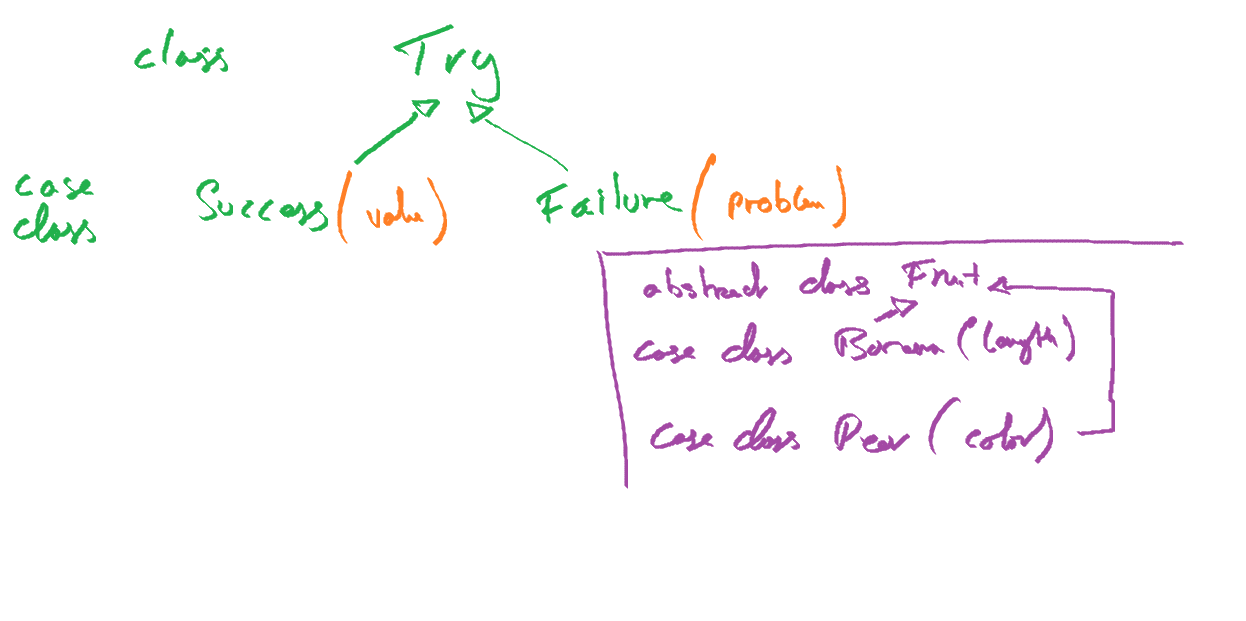 class Try
case
class
Success (value) Failure (problem)
abstract class Fruit
case class Banana (length)
case class Pear (color)